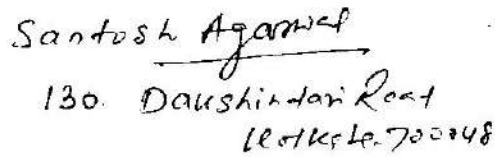 Santosh Agarwal
130. Daushindari Road
Kolkata. 700048